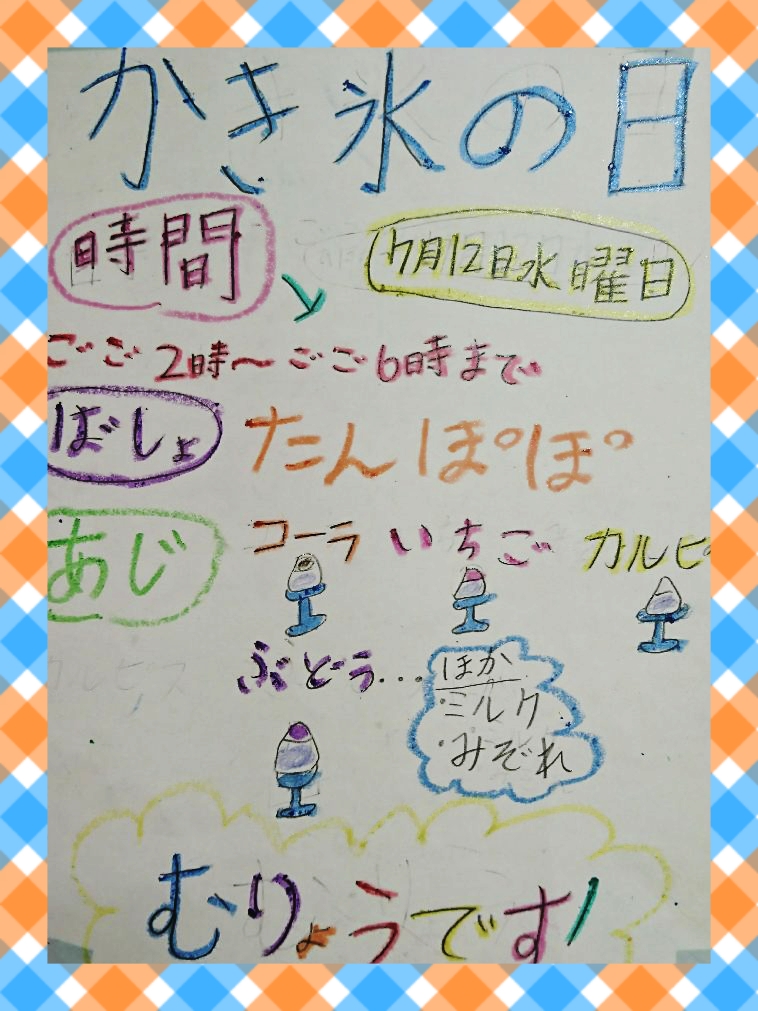 かき氷の日
時間
7月12日水曜日
ごご2時〜ごご6時まで
ばしょ たんぽぽ
あじ コーラ いちご カルピ
ぶどう...
ほか
・ミルク
・みぞれ
カルピス
むりょうです!